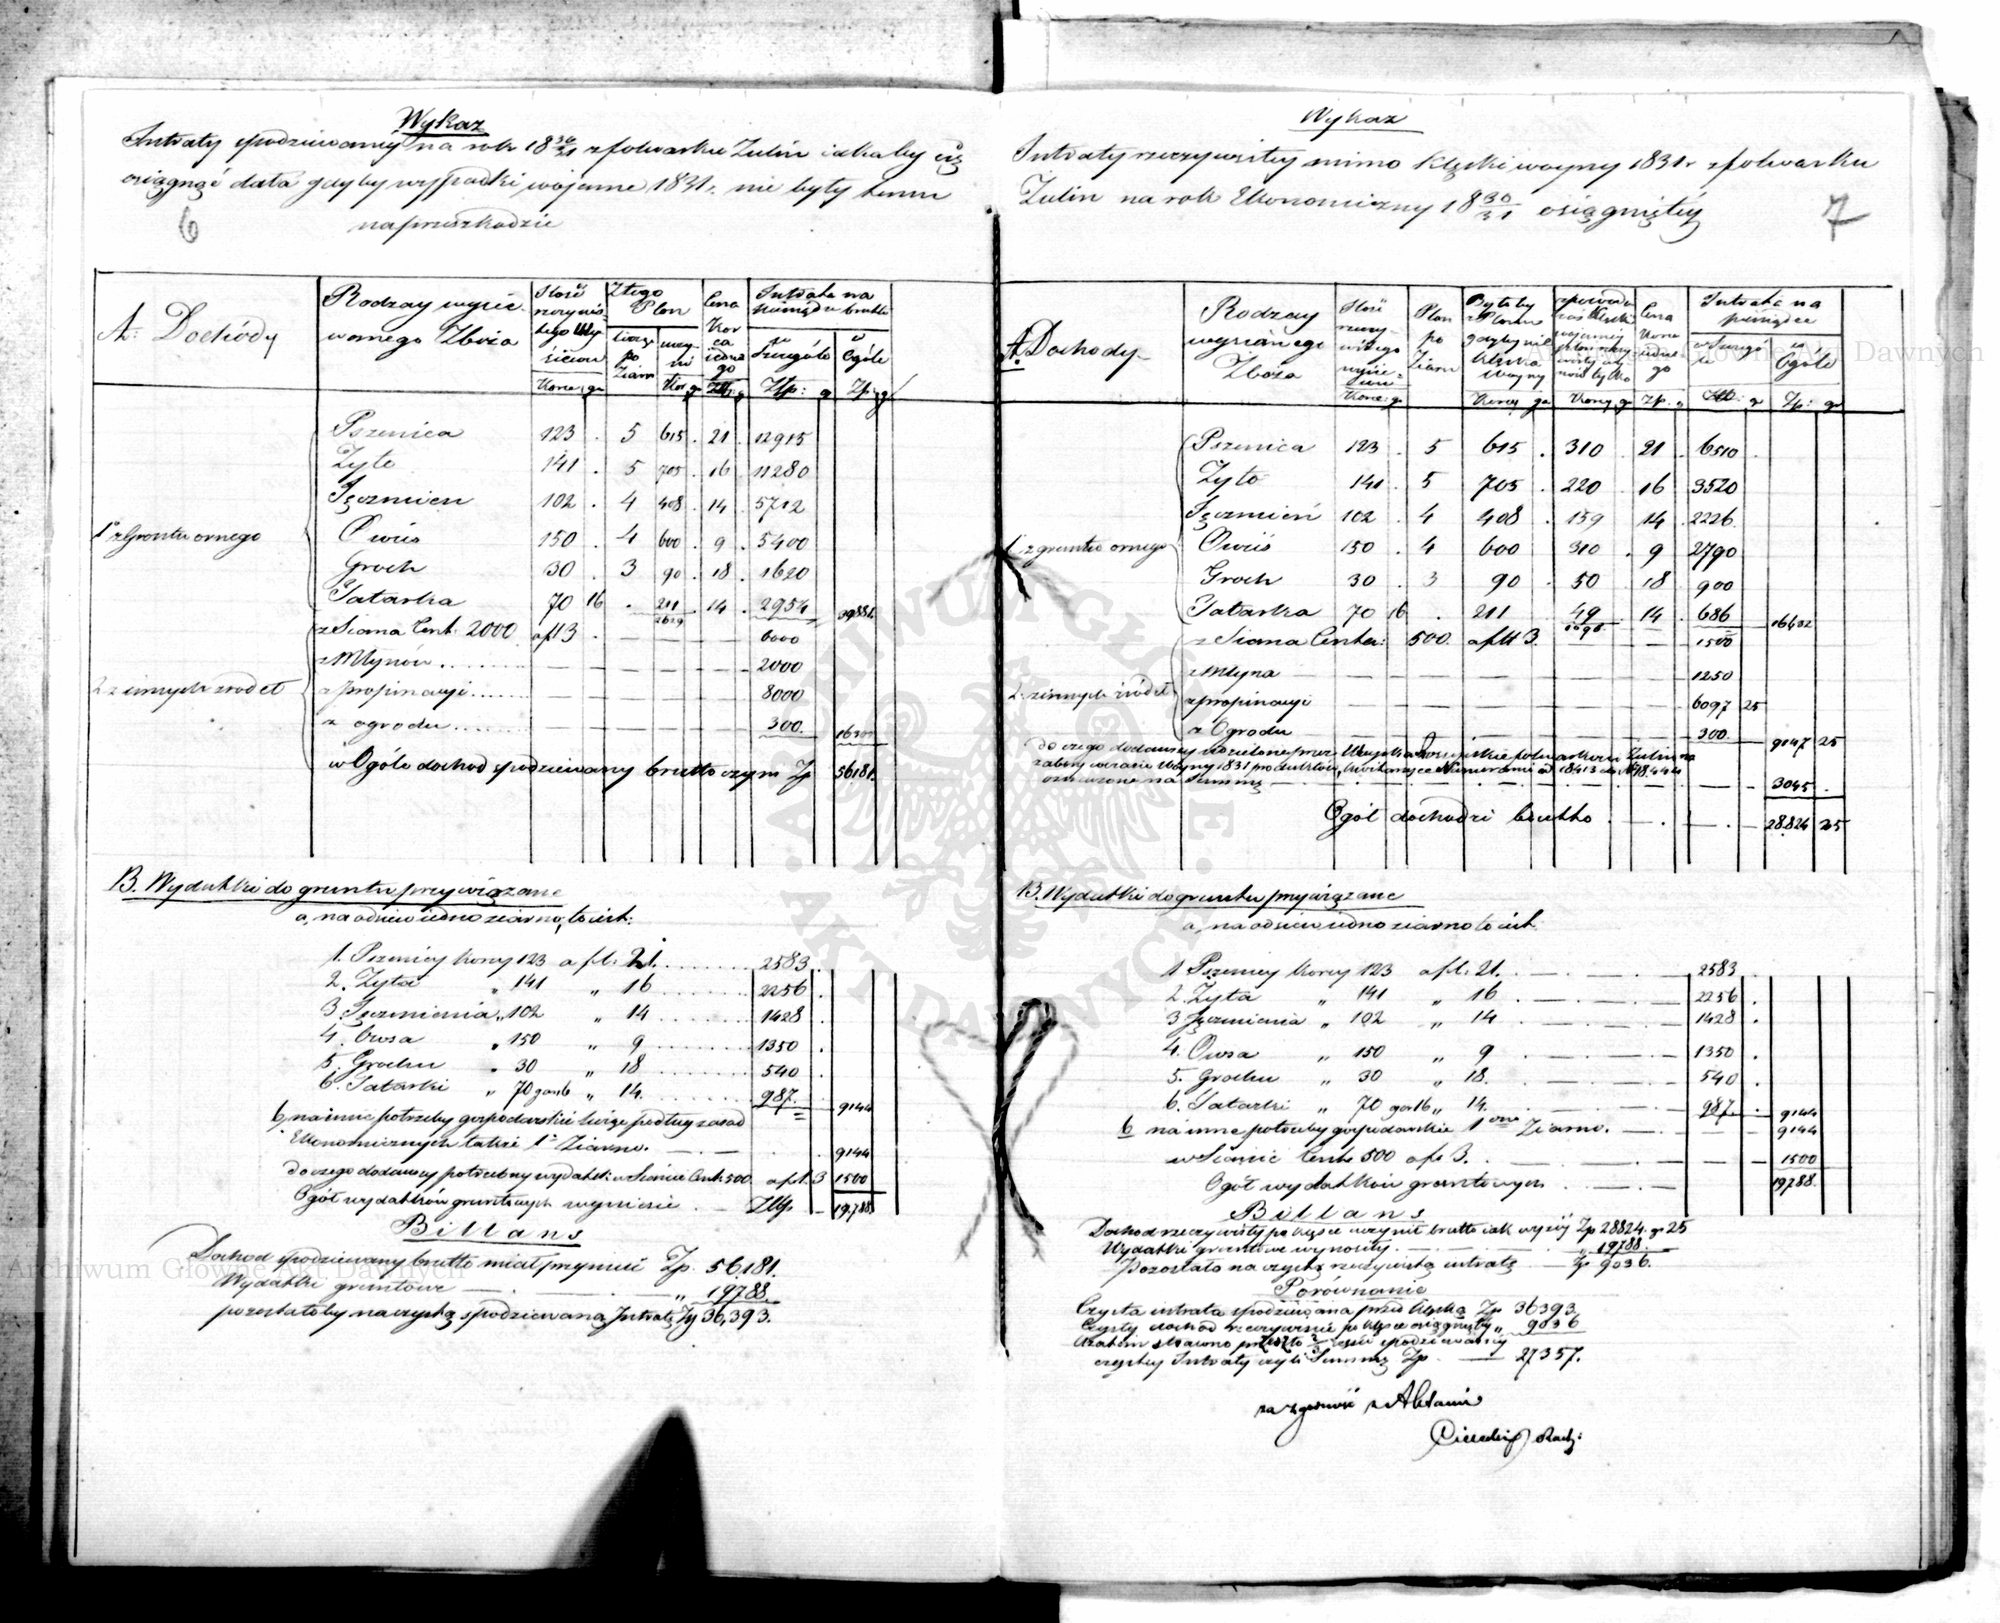 Wykaz
Intraty spodziewaney na rok 18 30/31 z folwarku Zulin iakaby się
osiągnąć dała gdyby wypadki wojenne 1831 r. nie były temu
na przeszkodzie
6
A. Dochódy
Rodzay wysie-
wanego Zboża
Ilość
rzeczywis-
tego Wy-
siewu
Korce: ga
Złego
Plon
licząc
po
Ziarn
czyni
Kor g
Cena
Kor
ca
iedne
go
Złp: g
Intrata na
pieniądze brutto
w
Szczególe
Złp: g
w
Ogóle
Zp: g
1° z Gruntu ornego
Pszenica 123 . 5 615 . 21 . 12915
Zyto 141 . 5 705 . 16 11280
Jęczmien 102 . 4 408 . 14 . 5712
Owies 150 . 4 600 . 9 . 5400
Groch 30 . 3 90 . 18 . 1620
Tatarka 70 16 . 211 . 14 . 2954 39881
2629
2 z innych zrodeł
z Siana Cent: 2000 a fl 3 . — — — 6000
z Młynów . . . — — — — 2000
z propinacyi . . . — — — — 8000
z ogrodu . . . — — — — 300. 16300
w Ogóle dochod spodziewany brutto czyni Zp 56181.
B. Wydatki do gruntu przywiązane
a, na odsiew iedno ziarno, to iest:
1. Pszenicy korcy 123 a fl: 21. . . . 2583.
2. Zyta " 141 " 16 . . . 2256 .
3. Jęczmienia " 102 " 14 . . . 1428 .
4. Owsa " 150 " 9 . . . 1350 .
5. Grochu " 30 " 18 . . . 540 .
6. Tatarki " 70 gar 16 " 14. . . . 987. 9144
b, na inne potrzeby gospodarskie licząc podług zasad
Ekonomicznych także 1° Ziarno. — — . . 9144
do czego dodawszy potrzebny wydatek w Sianie Cent: 500 a fl. 3 1500
Ogół wydatków gruntowych wyniesie . — Złp — 19.788
Billans
Dochod spodziewany brutto miał przynieść Zp. 56.181.
Wydatki gruntowe — . — . — " 19788.
pozostałoby na czystą spodziewaną Intratę Zp 36,393.
Wykaz
Intraty rzeczywistey mimo klęski woyny 1831 r z folwarku
Zulin na rok Ekonomiczny 18 30/31 osiągniętey
7
A. Dochody
Rodzay
wysianego
Zboża
Ilość
rzeczy-
wistego
wysie-
wu
Korce: ga
Plon
po
Ziarn
Byłoby
z Plonu
gdyby nie
klęska
Woyny
Korcy ga
z powodu
zaś klęski
wojenney
plon rzeczy
wisty wy-
niosł tylko
Korcy g
Cena
Korca
iedne
go
zp. "
Intrata na
pieniądze
w Szczegó
le
Złp: g
w
Ogóle
Zp: gr
1. z gruntu ornego
Pszenica 123 . 5 615 . 310 . 21 . 6510
Zyto 141 . 5 705 . 220 . 16 3520
Jęczmień 102 . 4 408 . 159 14 . 2226.
Owiés 150 . 4 600 310 . 9 2790
Groch 30 . 3 90 . 50 . 18 900
Tatarka 70 16 . 211 49 . 14 . 686 16632
1098
2. z innych źródeł
z Siana Centn: 500. a fl 3. — — — 1500
z Młyna — — — — — 1250
z propinacyi — — — — — 6097 25
z Ogrodu — — — — — 300 9147 25
do czego dodawszy udzielone przez Woyska Rossyiskie folwarkowi Zulin na
zabrane w czasie Woyny 1831 produkta, kwitańcye Numerami od 18413 do N 18.444
oznaczone na Summę — — — 3045 .
Ogół dochodu brutto . — . — 28.824 25
B. Wydatki do gruntu przywiązane
a, na odsiew iedno ziarno to iest.
1 Pszenicy Korcy 123 a fl: 21. . — . — 2583 .
2. Zyta " 141 " 16 . — — 2256 .
3 Jęczmienia " 102 " 14 . — — 1428 .
4. Owsa " 150 " 9 . — — 1350 .
5. Grochu " 30 " 18. . — — 540 .
6. Tatarki " 70 gar 16 " 14. — — 987. . 9144
b na inne potrzeby gospodarskie 1 one Ziarno. — . — 9144
w Sianie Cent: 500 a fl 3. . — — — 1500
Ogół wydatków gruntowych . — . — 19788.
Billans
Dochod rzeczywisty po klęsce uczynił brutto iak wyżéy Zp 28824. gr 25
Wydatki gruntowe wynosiły. — — — " 19788.
Pozostało na czystą rzeczywistą intratę — Zp 9036.
Porównanie
Czysta intrata spodziewana przed klęską Zp 36393
Czysty dochod rzeczywiście po klęsce osiągnięty " 9036
A zatém stracono przeszło 2/3 części spodziewaney
czystey Intraty czyli Summę Zp — 27357.
za zgodność z Aktami
Archiwum Główne Akt Dawnych
Archiwum Główne Akt Dawnych
ARCHIWUM GŁÓWNE AKT DAWNYCH